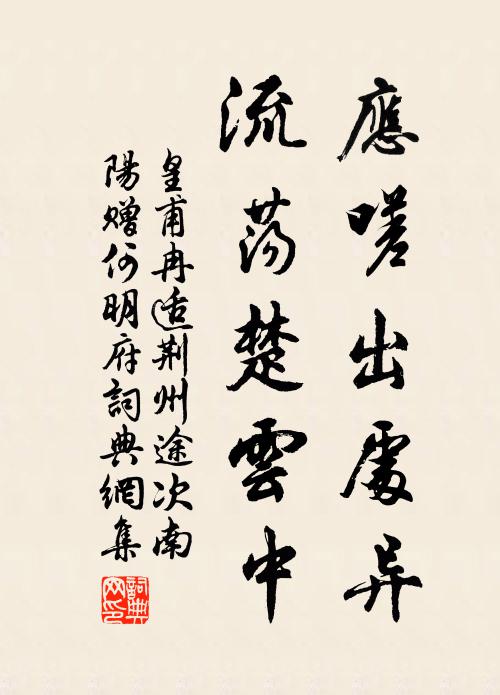 應嗟出處异
流荡楚雲中
皇甫冉适荆州途次南
陽赠何明府詞典網集
詞典
网印